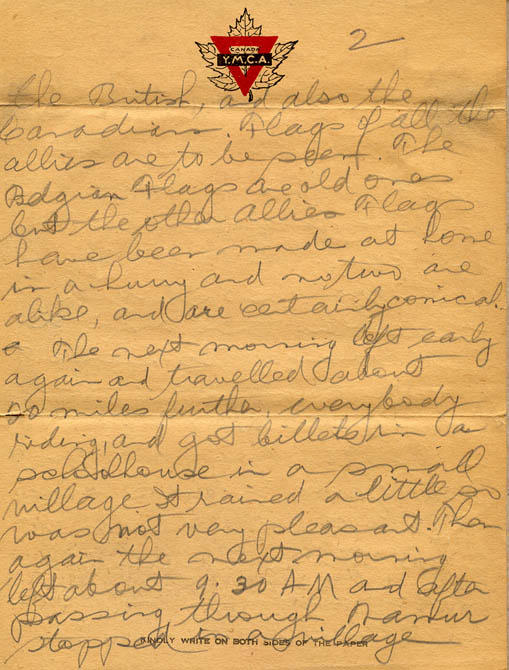 2
CANADA
Y.M.C.A.
the British, and also the
Canadians. Flags of all the
allies are to be seen. The
Belgian Flags are old ones
but the other allies Flags
have been made at home
in a hurry and no two are
alike, and are certainly comical.
The next morning left early
again and travelled about
20 miles further, everybody
riding, and got billets in a
schoolhouse in a small
village. It rained a little so
was not very pleasant. Then
again the next morning
left about 9.30 AM and after
passing through Namur
stopped in a village
KINDLY WRITE ON BOTH SIDES OF THE PAPER